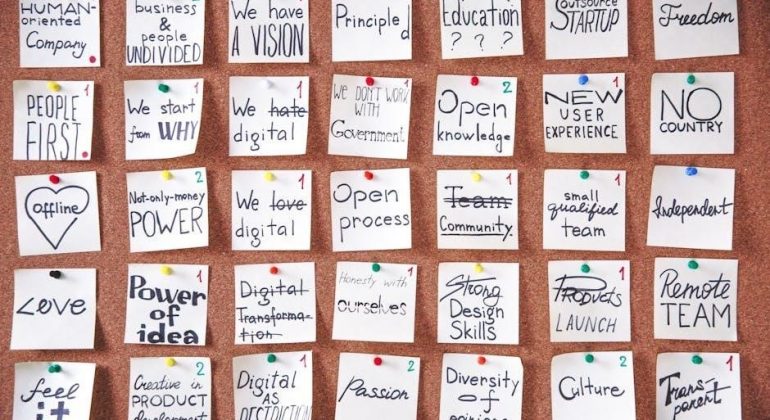 HUMAN-
oriented
Company
business &
people
UNDIVIDED
2
We have
A VISION
Principled
Education
? ? ?
OUTSOURCE
STARTUP
Freedom
PEOPLE
FIRST
1
We start
from WHY
1
We hate
digital
1
WE DON'T WORK
WITH
Government
1
Open
knowledge
2
NEW
USER
EXPERIENCE
1
NO
COUNTRY
offline
Not-only-money
POWER
2
We love
digital
1
Open
process
1
Team
Community
1
small
qualified
team
2
Independent
LOVE
Power
of
idea
1
Digital
Transforma-
tion
Honesty with
ourselves
1
Strong
Design
Skills
Products
LAUNCH
1
Remote
TEAM
feel
it
Creative in
PRODUCT
development
2
Digital
AS
DESTRUCTION
1
Passion
2
Diversity
of
opinions
Culture
2
Trans-
parent
1